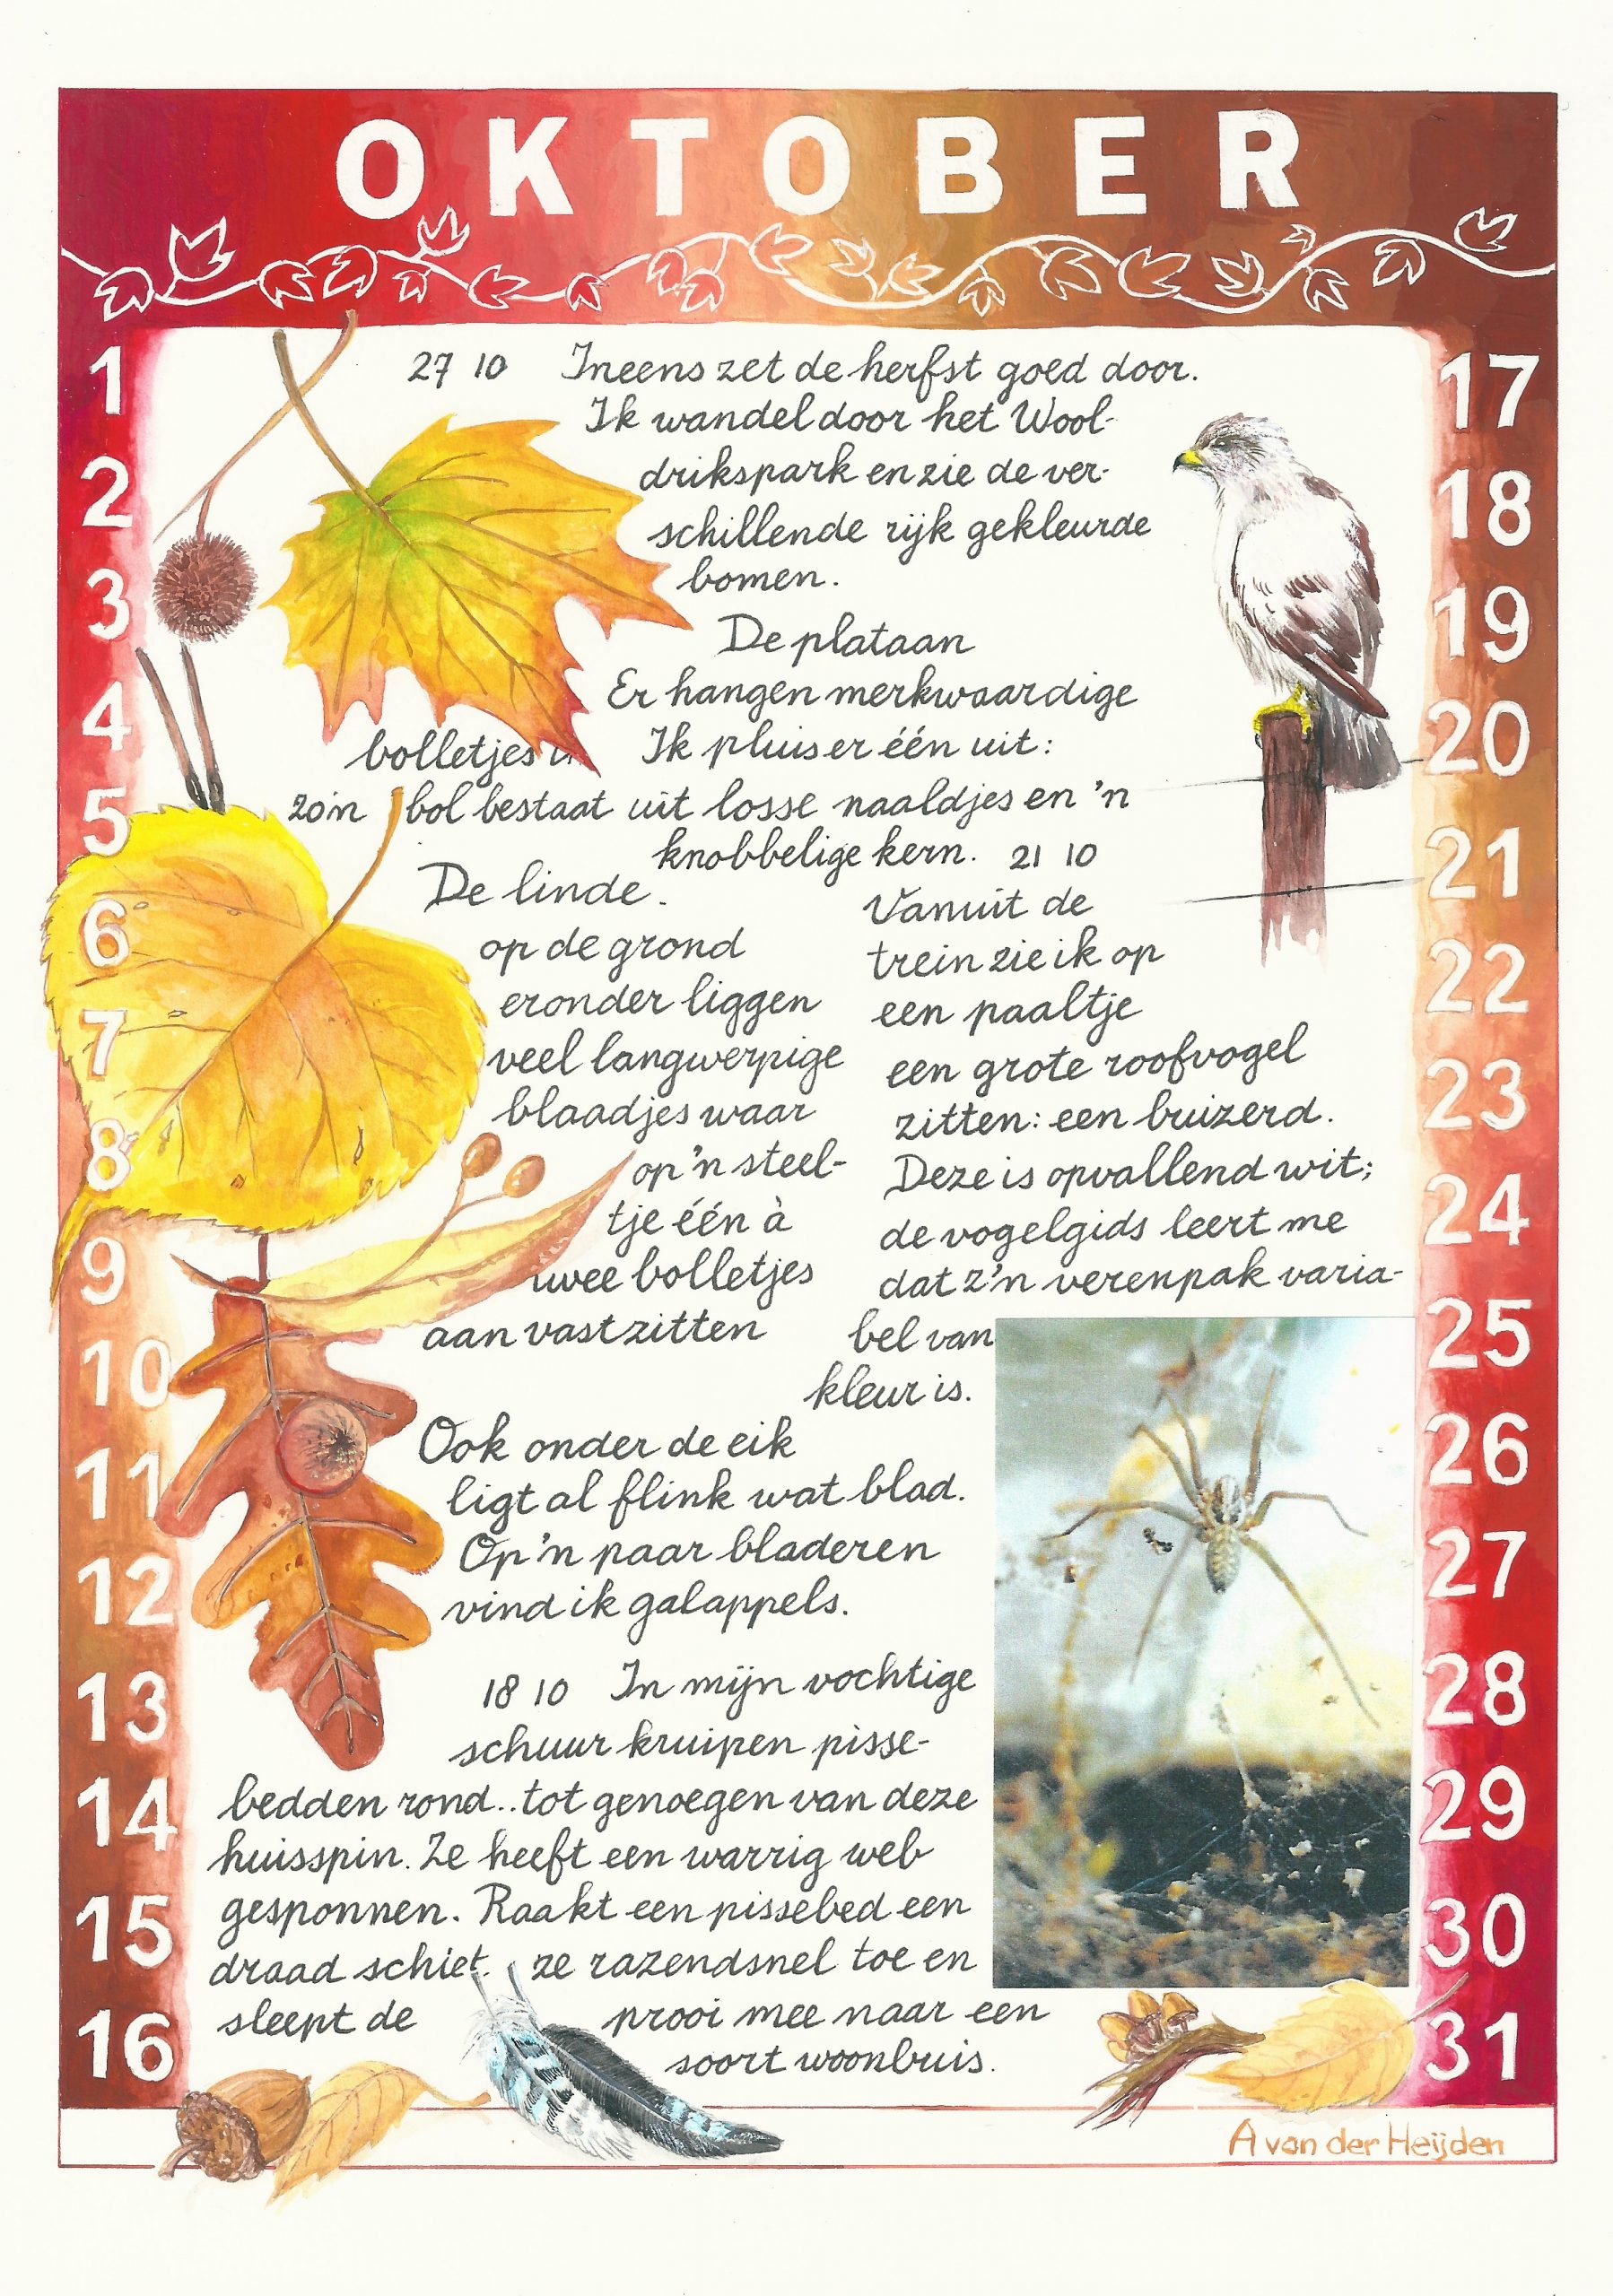 OKTOBER
1
2
3
4
5
6
7
8
9
10
11
12
13
14
15
16
27 10 Ineens zet de herfst goed door.
Ik wandel door het Wool-
drikspark en zie de ver-
schillende rijk gekleurde
bomen.
De plataan
Er hangen merkwaardige
bolletjes Ik pluis er één uit:
zo'n bol bestaat uit losse naaldjes en 'n
knobbelige kern.
De linde.
op de grond
eronder liggen
veel langwerpige
blaadjes waar
op 'n steel-
tje één à
twee bolletjes
aan vast zitten
Ook onder de eik
ligt al flink wat blad.
Op 'n paar bladeren
vind ik galappels.
21 10
Vanuit de
trein zie ik op
een paaltje
een grote roofvogel
zitten: een buizerd.
Deze is opvallend wit;
de vogelgids leert me
dat z'n verenpak varia-
bel van
kleur is.
18 10 In mijn vochtige
schuur kruipen pisse-
bedden rond..tot genoegen van deze
huisspin. Ze heeft een warrig web
gesponnen. Raakt een pissebed een
draad schiet ze razendsnel toe en
sleept de prooi mee naar een
soort woonbuis.
17
18
19
20
21
22
23
24
25
26
27
28
29
30
31
A van der Heijden